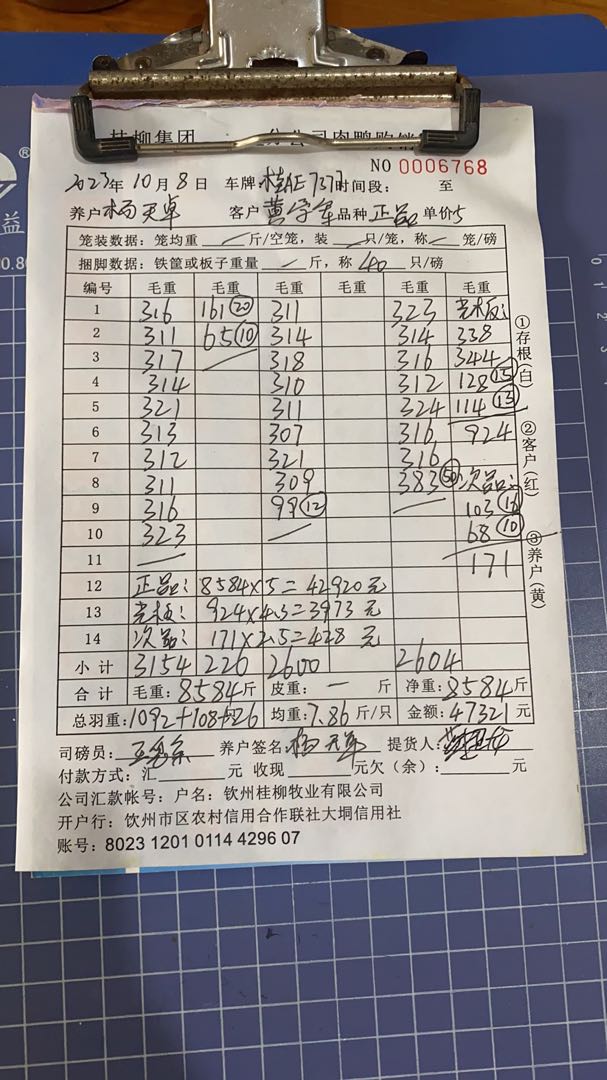 桂柳集团 分公司肉鸭购销
NO 0006768
2023年10月8日 车牌 桂AE7377 时间段: 至
养户 杨天卓 客户 黄字军 品种 正品 单价 5
笼装数据: 笼均重 / 斤/空笼, 装 / 只/笼, 称 / 笼/磅
捆脚数据: 铁筐或板子重量 / 斤, 称 40 只/磅
编号 毛重 毛重 毛重 毛重 毛重 毛重
1 316 161(20) 311 323 光板:
2 311 65(10) 314 314 338
3 317 / 318 316 344
4 314 310 312 128(15)
5 321 311 324 114(13)
6 313 307 316 924
7 312 321 316
8 311 309 383(50) 次品:
9 316 99(12) / 103(16)
10 323 / 68(10)
11 / 171
12 正品: 8584×5=42920元
13 光板: 924×4.3=3973元
14 次品: 171×2.5=428元
小计 3154 226 2600 2604
合计 毛重: 8584斤 皮重: — 斤 净重: 8584斤
总羽重: 1092+108+26 均重: 7.86斤/只 金额: 47321元
司磅员: 养户签名: 杨天卓 提货人:
付款方式: 汇 元 收现 元欠(余): 元
公司汇款帐号: 户名: 钦州桂柳牧业有限公司
开户行: 钦州市区农村信用合作联社大垌信用社
账号: 8023 1201 0114 4296 07
①存根(白) ②客户(红) ③养户(黄)
益